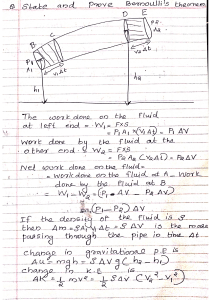 Q State and Prove Bernoulli's theorem
D E
P2
A2
B C
V2Δt
P1
A1
V1Δt
h1
h2
The work done on the fluid
at left end = W1 = F×S
= P1 A1 × (V1Δt) = P1 ΔV
Work done by the fluid at the
other end = W2 = F×S
= P2 A2 (V2Δt) = P2 ΔV
Net work done on the fluid =
= work done on the fluid at A - work
done by the fluid at B
= W1 - W2 = (P1 ΔV - P2 ΔV)
(P1 - P2) ΔV
If the density of the fluid is ρ
then Δm = ρA1V1Δt = ρ ΔV is the mass
passing through the pipe in time Δt
change in gravitational P.E is
ΔU = mgh = ρ ΔV g (h2 - h1)
change in K.E is
ΔK = 1/2 mv² = 1/2 ρ ΔV (V2² - V1²)